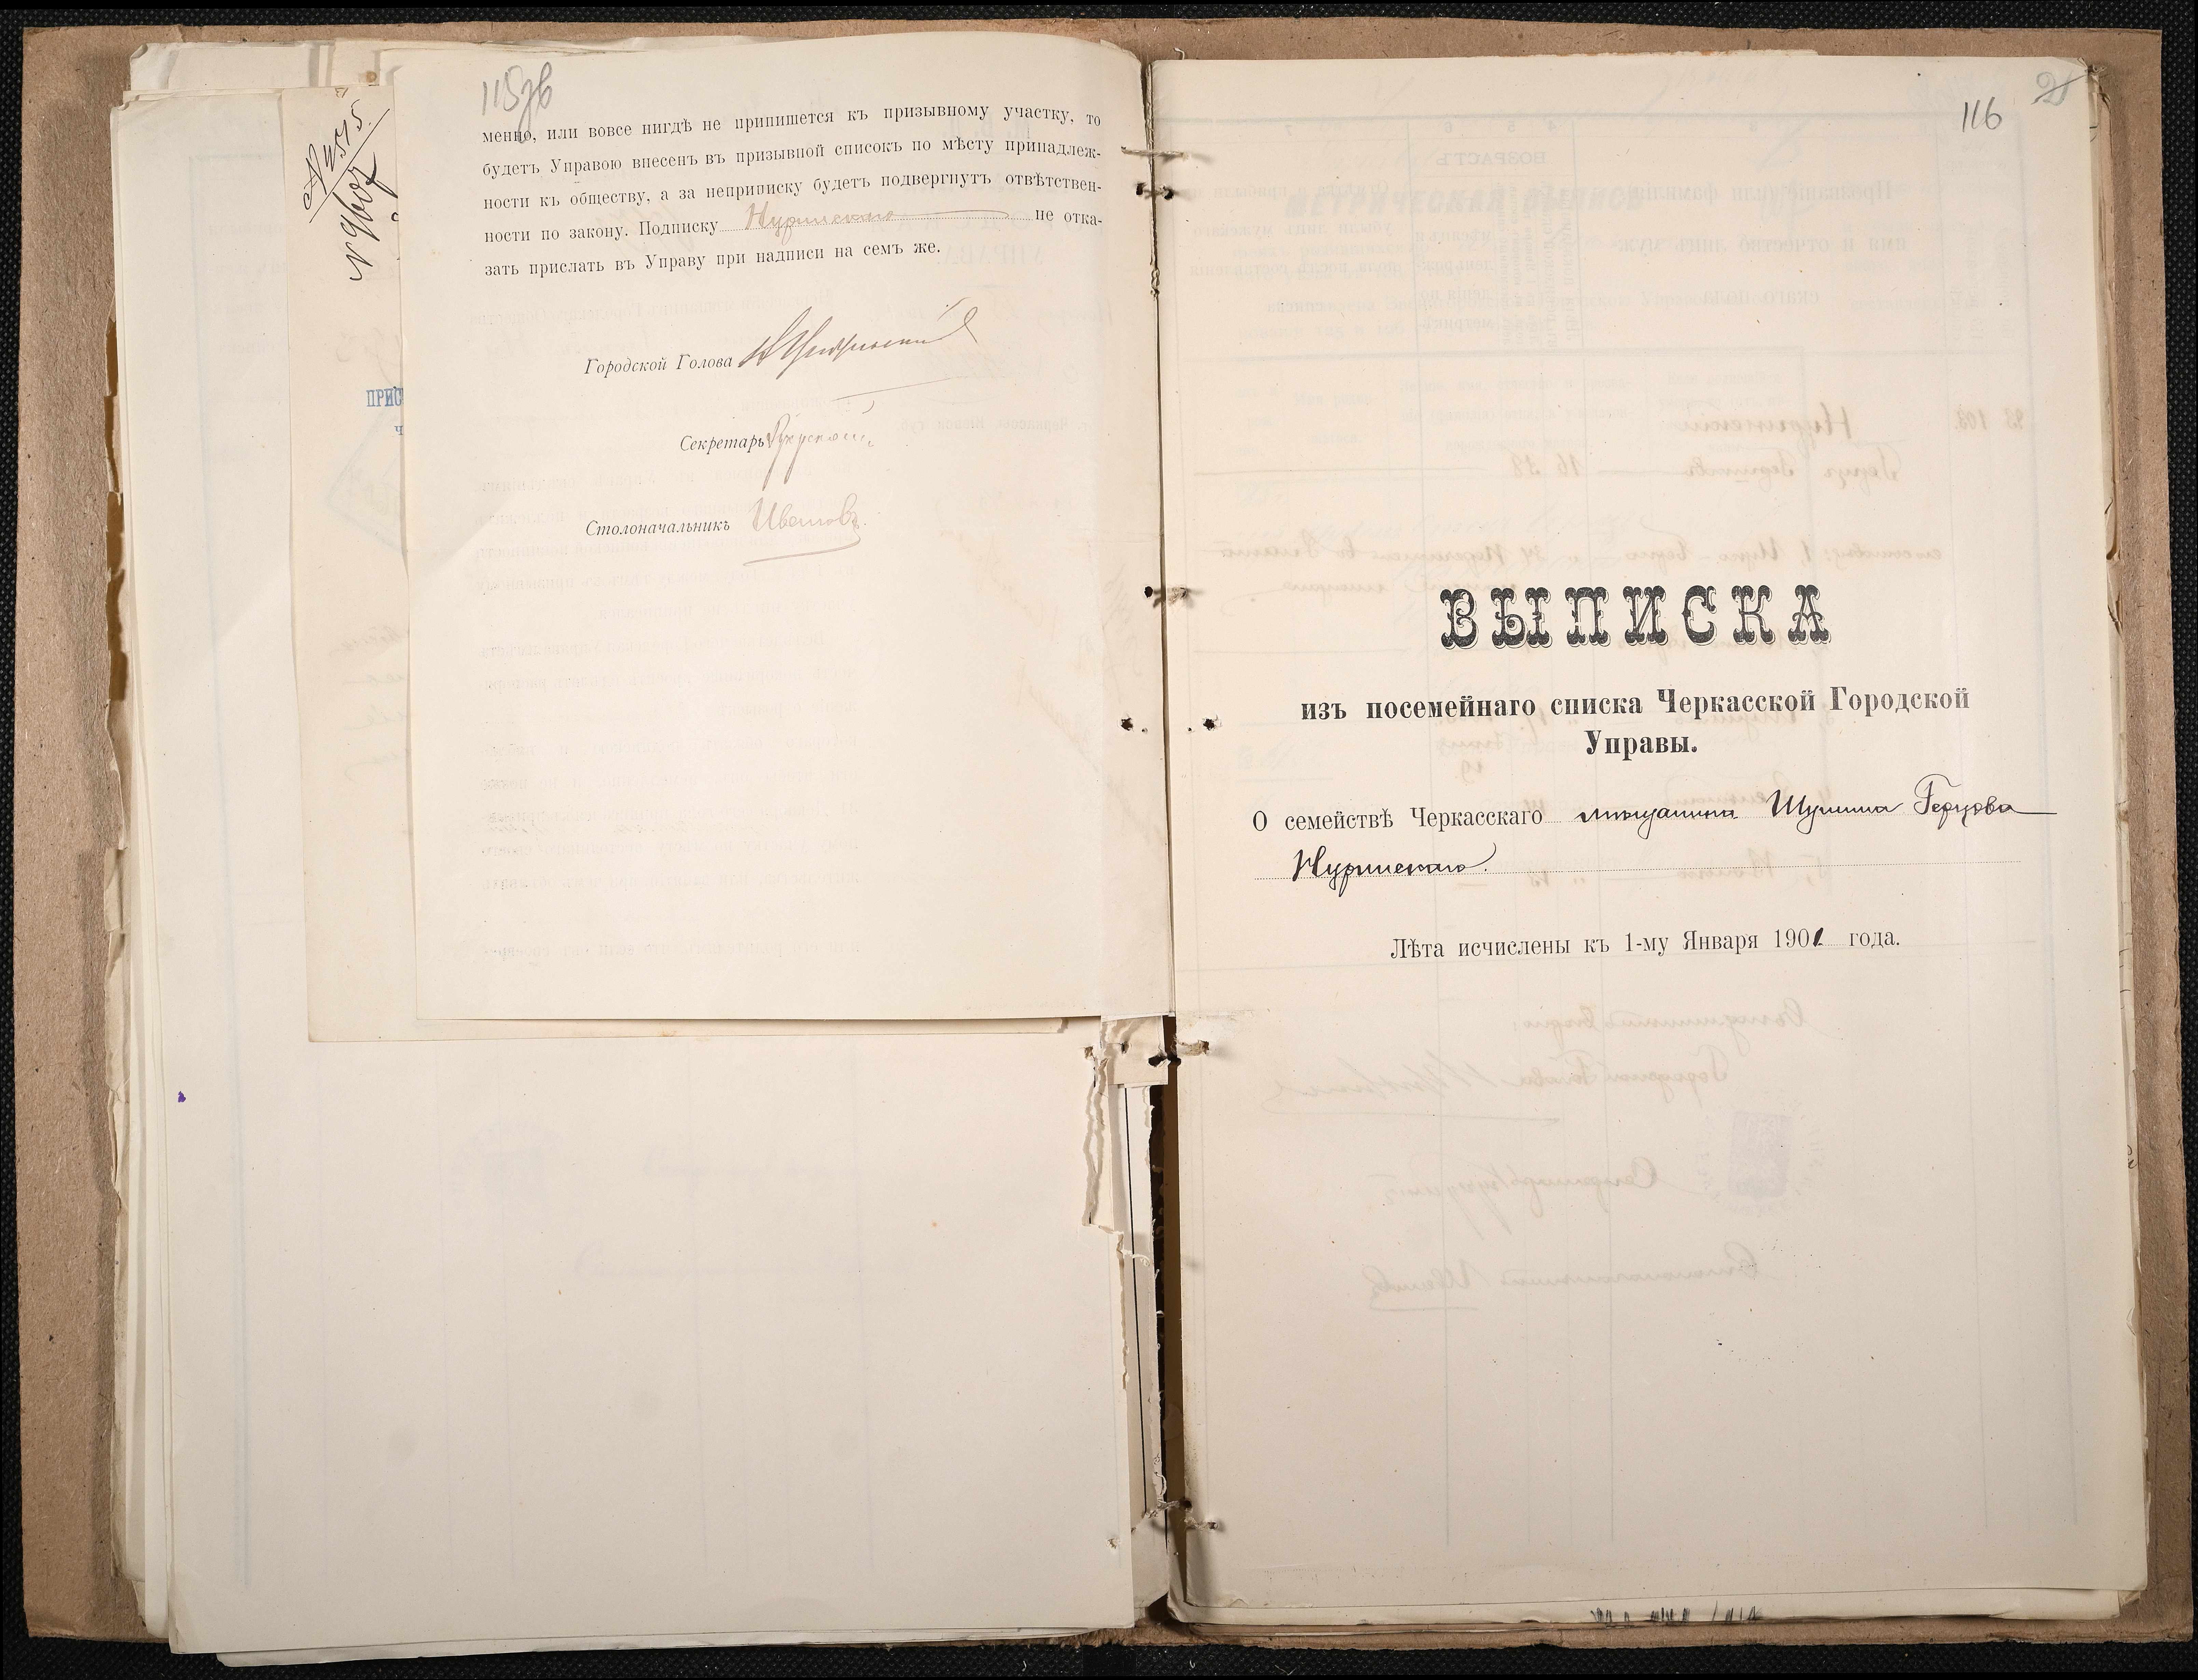 115зв
менно, или вовсе нигдѣ не припишется къ призывному участку, то
будетъ Управою внесенъ въ призывной списокъ по мѣсту принадлеж-
ности къ обществу, а за неприписку будетъ подвергнутъ отвѣтствен-
ности по закону. Подписку Нуринскаго не отка-
зать прислать въ Управу при надписи на семъ же.
Городской Голова
Секретарь
Столоначальникъ Ивановъ
ПРИС
116
ВЫПИСКА
изъ посемейнаго списка Черкасской Городской
Управы.
О семействѣ Черкасскаго мѣщанина Шулима Герцова
Нуринскаго.
Лѣта исчислены къ 1-му Января 1901 года.